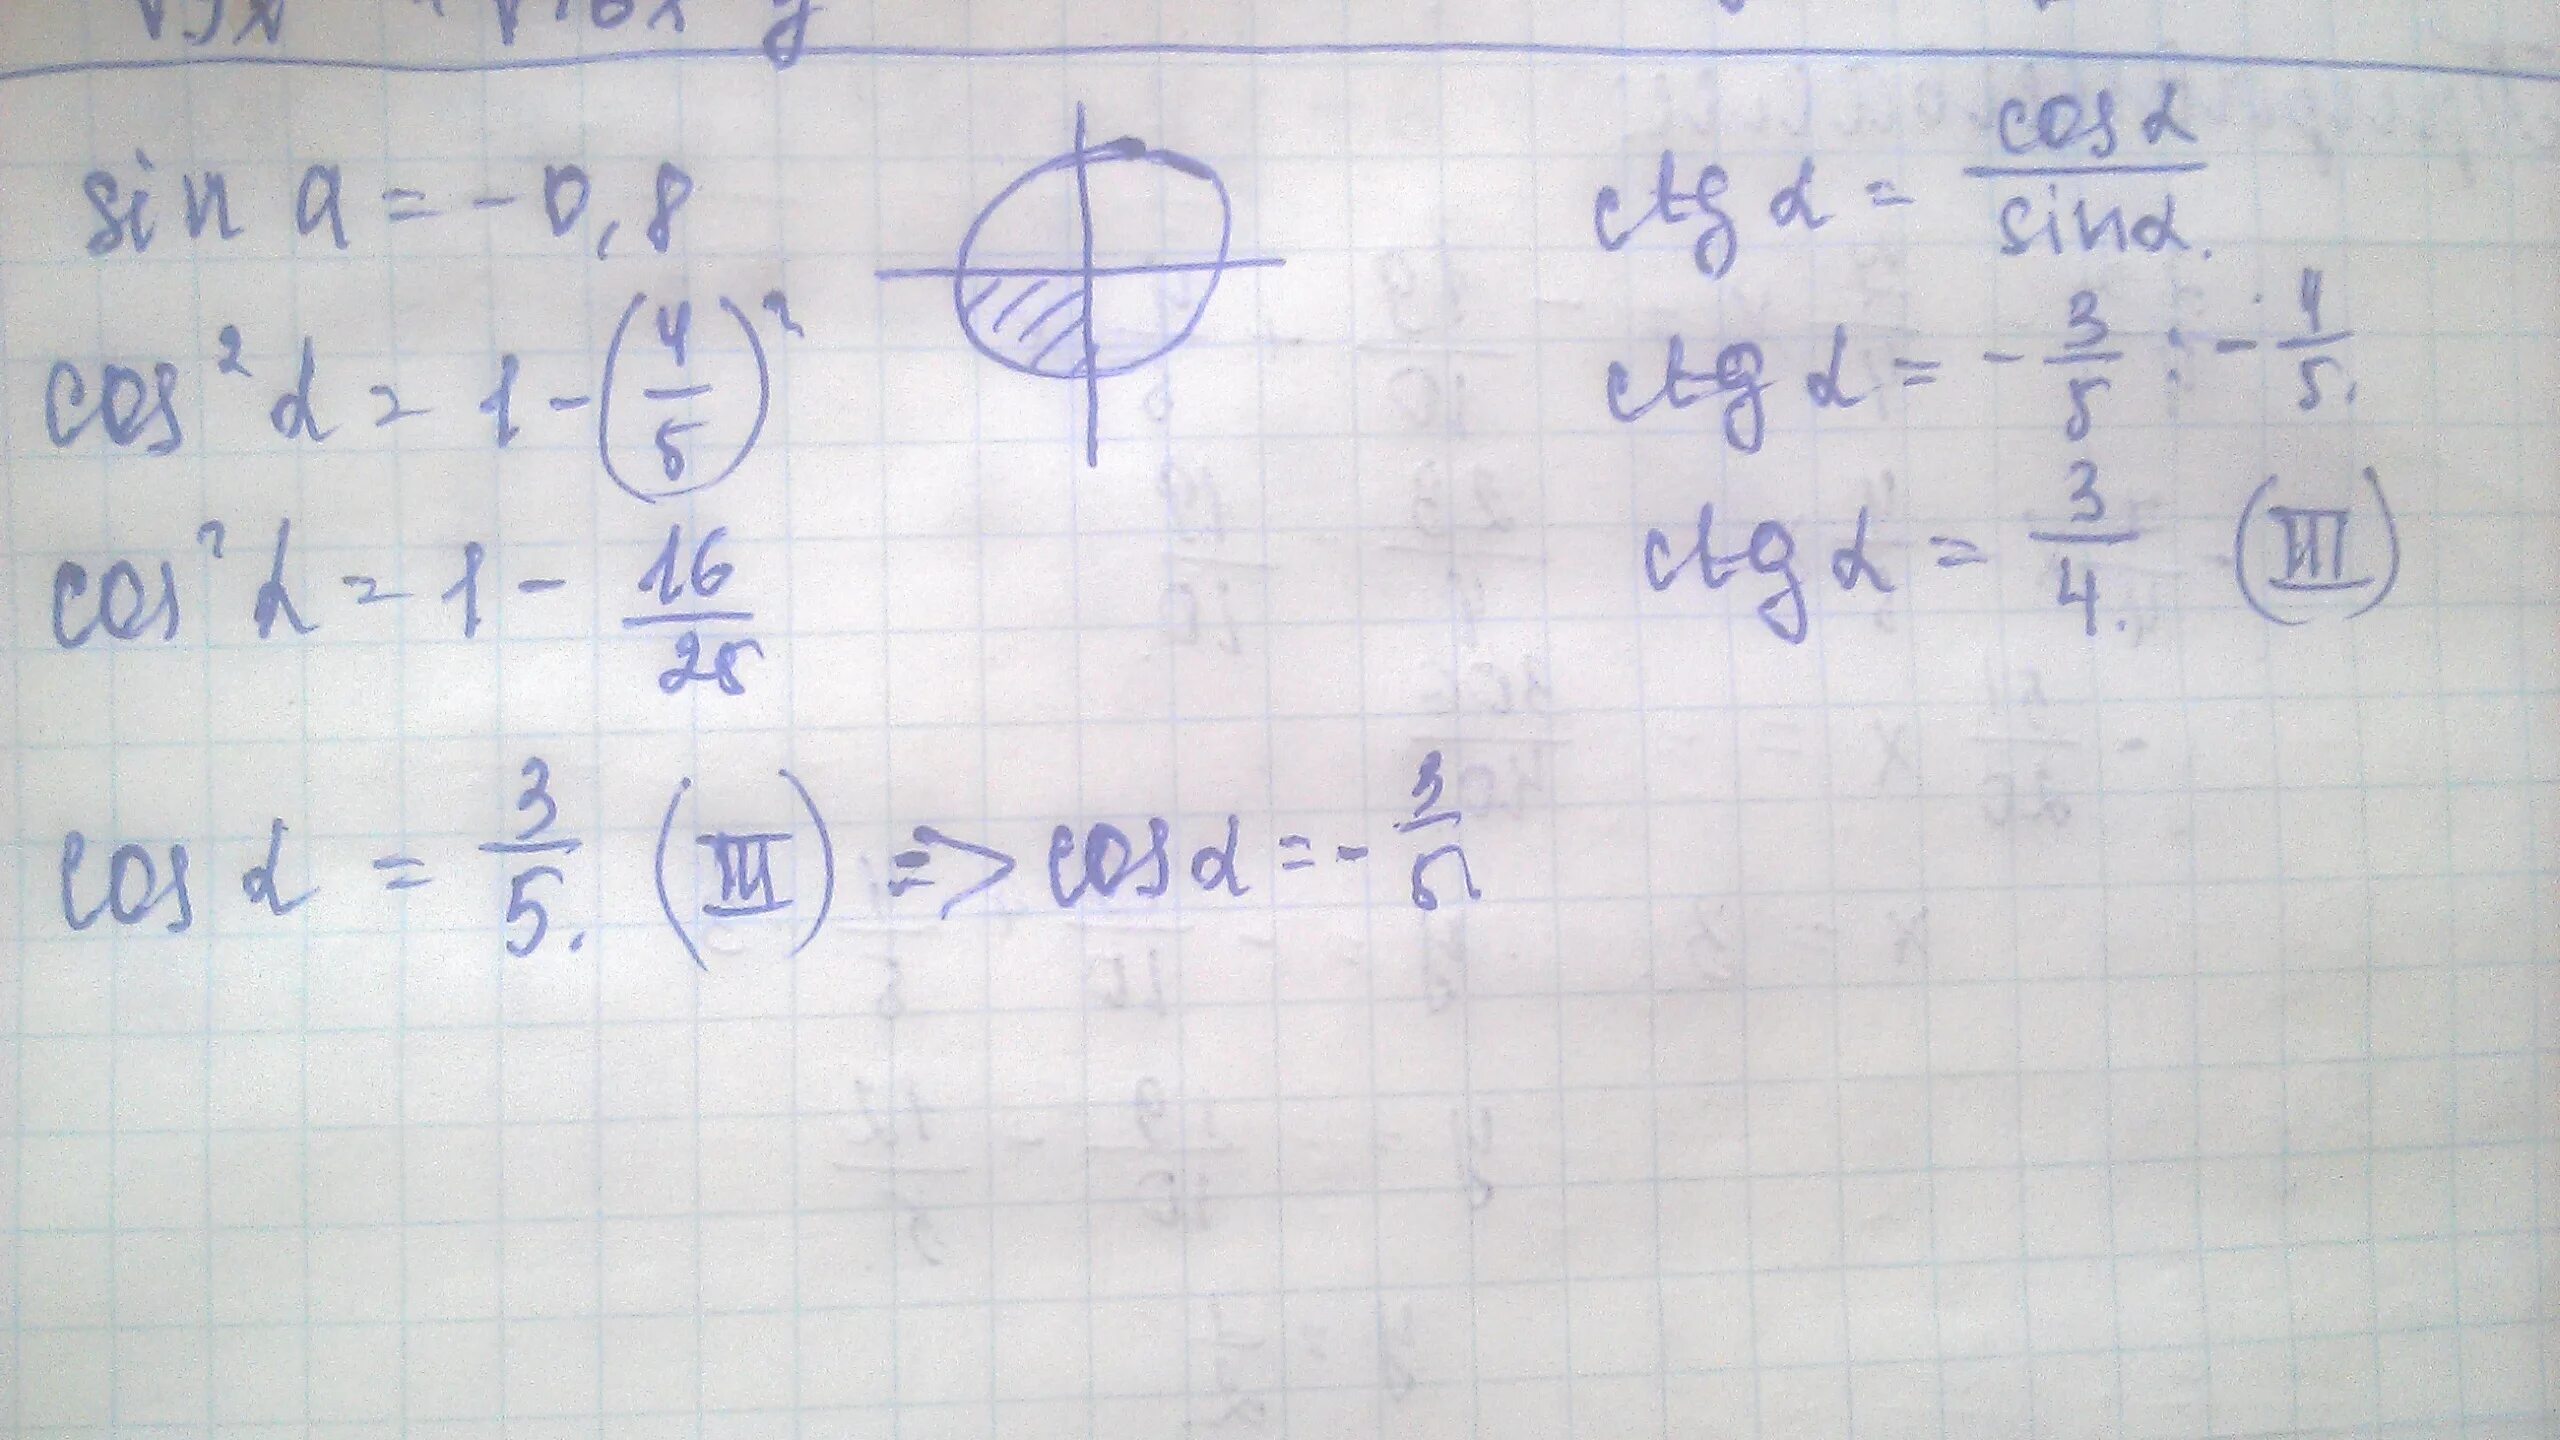 sin a = -0,8
cos² α = 1 - (4/5)²
cos² α = 1 - 16/25
cos α = 3/5. (III) => cos α = - 3/5
ctg α = cos α / sin α.
ctg α = - 3/5 : - 4/5.
ctg α = 3/4. (III)